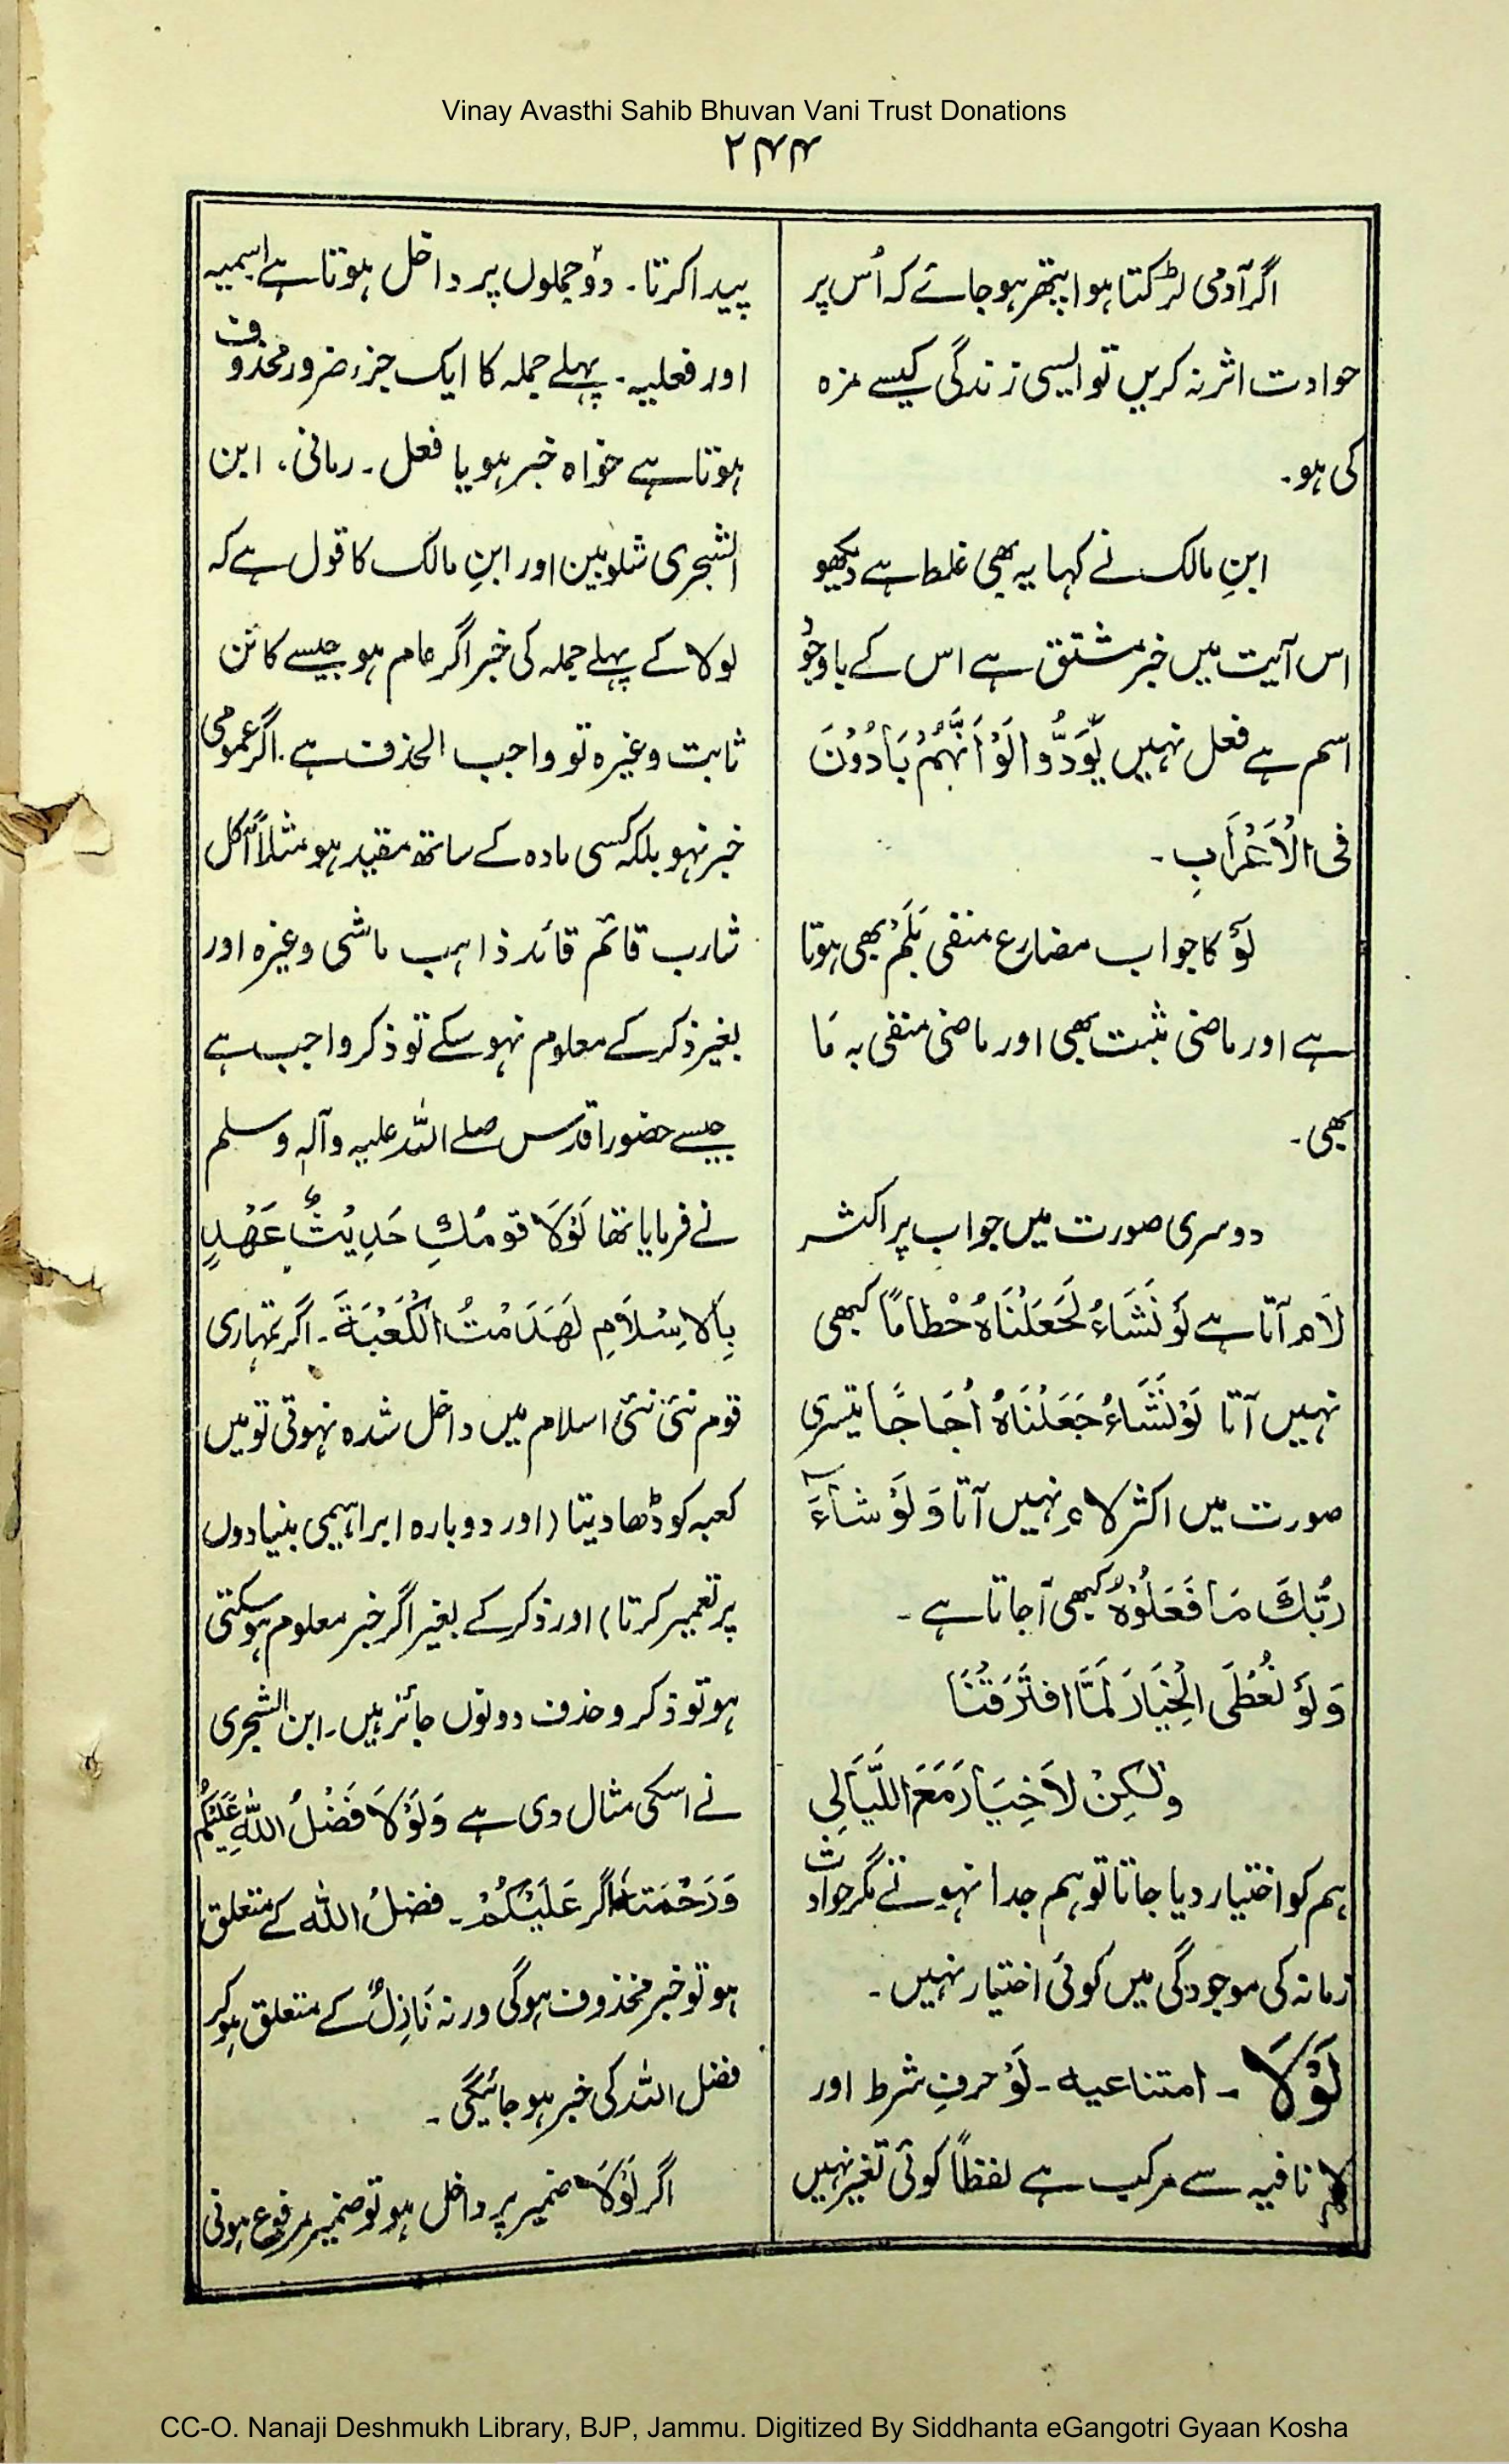 Vinay Avasthi Sahib Bhuvan Vani Trust Donations
۲۴۴
اگر آدمی لڑکتا ہوا پتھر ہو جائے کہ اُس پر
حوادث اثر نہ کریں تو ایسی زندگی کیسے مزہ
کی ہو۔
ابنِ مالک نے کہا یہ بھی غلط ہے دیکھو
اس آیت میں خبر مشتق ہے اس کے باوجود
اسم ہے فعل نہیں یَوَدُّوا لَوْ اَنَّہُمْ بَادُوْنَ
فی الْاَعْرَابِ۔
لَوْ کا جواب مضارع منفی بَلَمْ بھی ہوتا
ہے اور ماضی مثبت بھی اور ماضی منفی بہ مَا
بھی۔
دوسری صورت میں جواب پر اکثر
لَام آتا ہے لَوْ نَشَاءُ لَجَعَلْنَاہُ حُطَامًا کبھی
نہیں آتا لَوْ نَشَاءُ جَعَلْنَاہُ اُجَاجًا تیسری
صورت میں اکثر لام نہیں آتا وَ لَوْ شَآءَ
رَبُّكَ مَا فَعَلُوْہُ کبھی آ جاتا ہے۔
وَلَوْ نُعْطَی الْخِیَارَ لَمَا افتَرَقْنَا
ولٰكِنْ لَا خِیَارَ مَعَ اللَّیَالِی
ہم کو اختیار دیا جاتا تو ہم جدا نہوتے مگر حوادث
زمانہ کی موجودگی میں کوئی اختیار نہیں۔
لَوْلَا ۔ امتناعیہ ۔ لَوْ حرفِ شرط اور
لا نافیہ سے مرکب ہے لفظاً کوئی تغیر نہیں
پیدا کرتا۔ دو جملوں پر داخل ہوتا ہے اسمیہ
اور فعلیہ۔ پہلے جملہ کا ایک جزء ضرور محذوف
ہوتا ہے خواہ خبر ہو یا فعل۔ رمانی، ابن
الشجری شلوبین اور ابنِ مالک کا قول ہے کہ
لولا کے پہلے جملہ کی خبر اگر عام ہو جیسے کائن
ثابت وغیرہ تو واجب الحذف ہے۔ اگر عمومی
خبر نہو بلکہ کسی مادہ کے ساتھ مقید ہو مثلاً آکل
شارب قائم قائد ذاہب ماشی وغیرہ اور
بغیر ذکر کے معلوم نہو سکے تو ذکر واجب ہے
جیسے حضور اقدس صلے اللہ علیہ وآلہٖ وسلم
نے فرمایا تھا لَوْلَا قومُكِ حَدِیْثُ عَھْدٍ
بِالاِسْلَامِ لَھَدَمْتُ الْكَعْبَةَ۔ اگر تمہاری
قوم نئی نئی اسلام میں داخل شدہ نہوتی تو میں
کعبہ کو ڈھا دیتا (اور دوبارہ ابراہیمی بنیادوں
پر تعمیر کرتا) اور ذکر کے بغیر اگر خبر معلوم ہو سکتی
ہو تو ذکر و حذف دونوں جائز ہیں۔ ابن الشجری
نے اسکی مثال دی ہے وَلَوْلَا فَضْلُ اللّٰہِ عَلَیْكُمْ
وَرَحْمَتُہٗ اگر عَلَیْكُمْ۔ فضلُ اللّٰہ کے متعلق
ہو تو خبر محذوف ہوگی ورنہ نَازِلٌ کے متعلق ہو کر
فضل اللہ کی خبر ہو جائیگی۔
اگر لَوْلَا ضمیر پر داخل ہو تو ضمیر مرفوع ہوتی
CC-O. Nanaji Deshmukh Library, BJP, Jammu. Digitized By Siddhanta eGangotri Gyaan Kosha